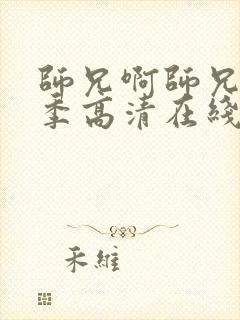 師兄啊師兄
季高清在綫
禾維